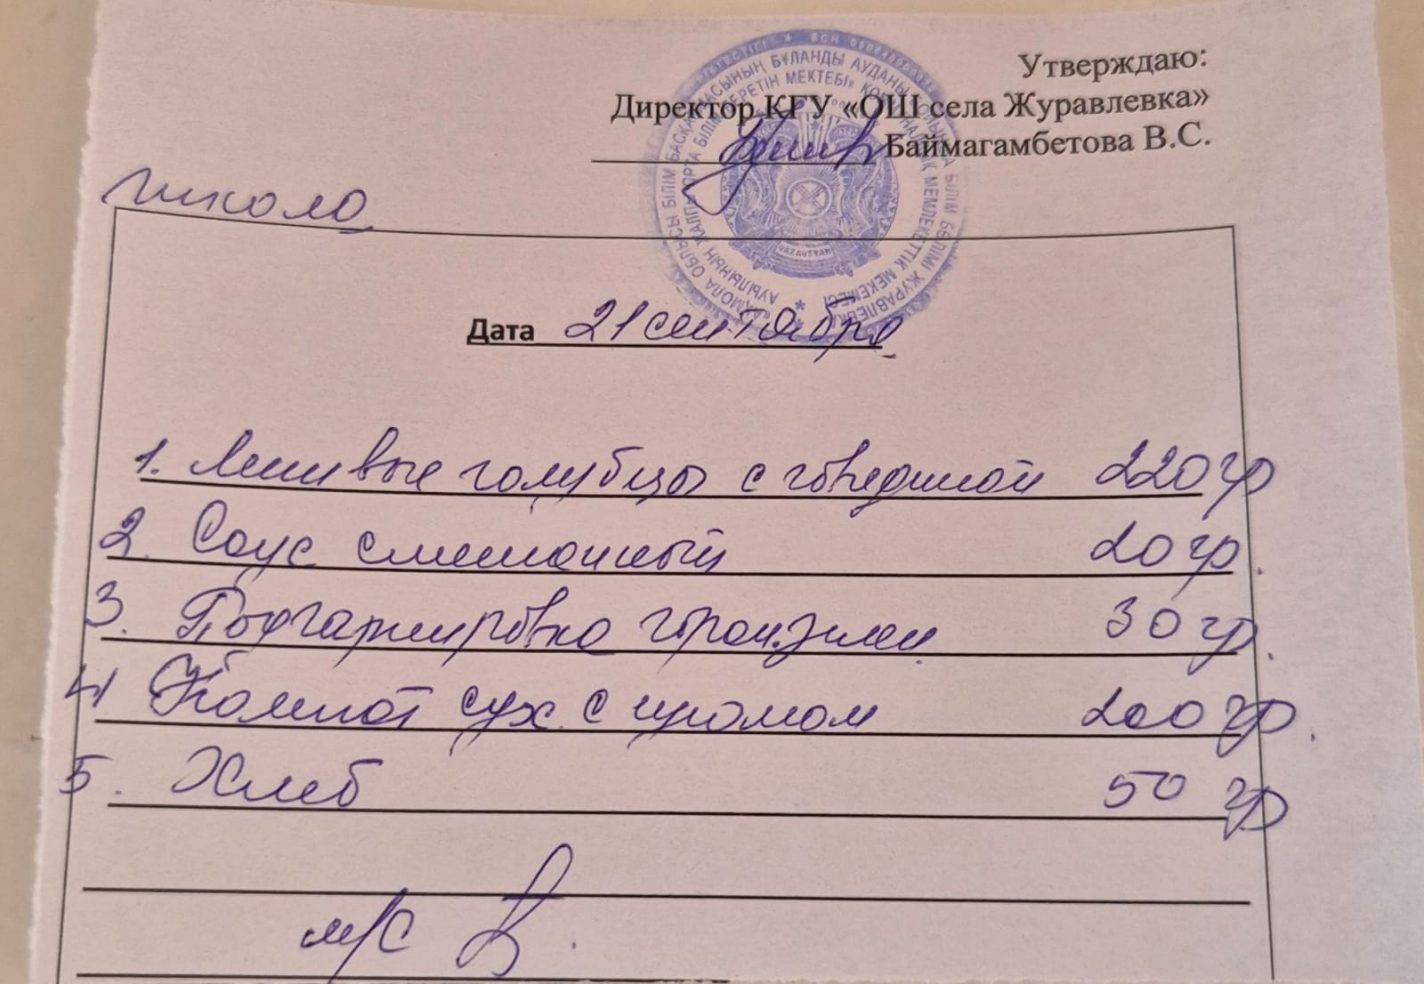 Утверждаю:
Директор КГУ «ОШ села Журавлевка»
Баймагамбетова В.С.
школа
Дата 21 сентября
1. Ленивые голубцы с говядиной 220 гр
2. Соус сметанный 20 гр.
3. Подгарнировка гор. 30 гр.
4 Компот сух с изюмом 200 гр.
5. Хлеб 50 гр
м/с